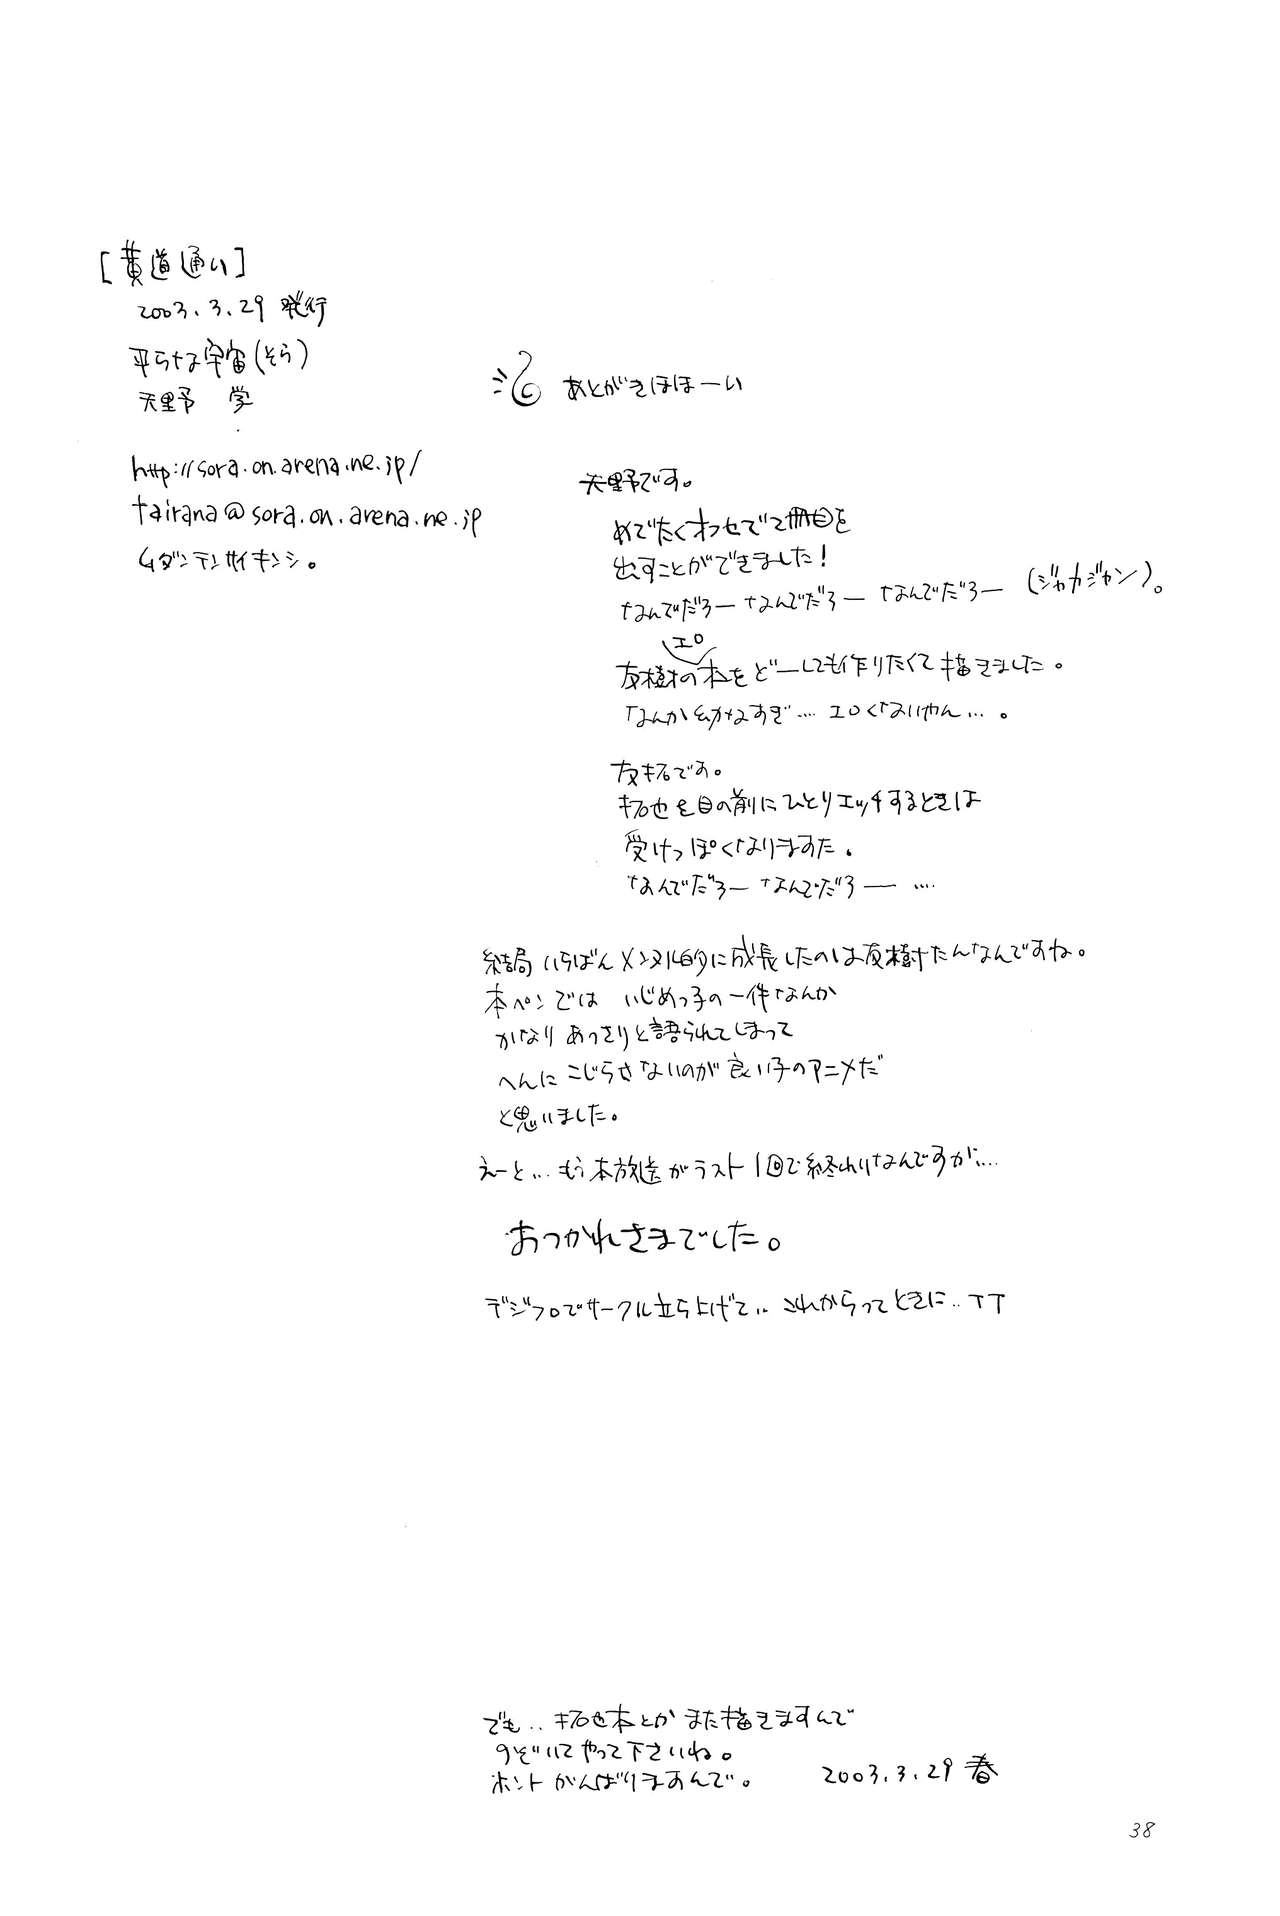 [黄道通い]
2003.3.29 発行
平らな宇宙(そら)
天野 学
http://sora.on.arena.ne.jp/
tairana@sora.on.arena.ne.jp
ムダンテンサイキンシ。
あとがきほほーい
天野です。
めでたくオフセで2冊目を
出すことができました!
なんでだろー なんでだろー なんでだろー (ジャカジャン)。
エロ
友樹の本をどーしても作りたくて描きました。
なんか幼なすぎ…. エロくないやん…。
友拓です。
拓也を目の前にひとりエッチするときは
受けっぽくなりますた.
なんでだろー なんでだろー ….
結局 いちばんメンタル的に成長したのは友樹たんなんですね。
本ペンでは いじめっ子の一件なんか
かなり あっさりと語られてしまって
へんに こじらさないのが 良い子のアニメだ
と思いました。
えーと… もう本放送がラスト1回で終わりなんですが….
おつかれさまでした。
デジフロでサークル立ち上げて.. これからってときに.. TT
でも.. 拓也本とか また描きますんで
のぞいてやって下さいね。
ホント がんばりますんで。
2003.3.29 春
38